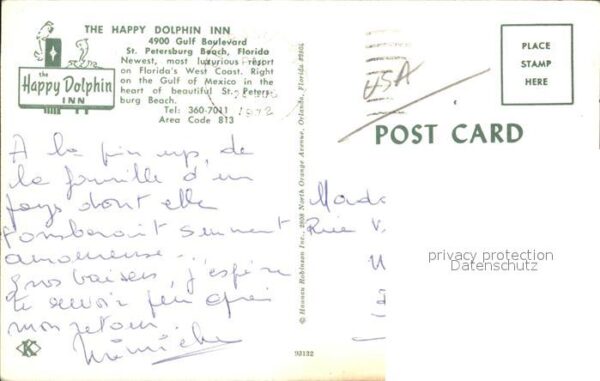 THE HAPPY DOLPHIN INN
4900 Gulf Boulevard
St. Petersburg Beach, Florida
Newest, most luxurious resort
on Florida's West Coast. Right
on the Gulf of Mexico in the
heart of beautiful St. Peters-
burg Beach.
Tel: 360-7011
Area Code 813
the
Happy Dolphin
INN
1972
USA
PLACE
STAMP
HERE
POST CARD
A la pin up, de
la famille d'un
pays dont elle
tomberait surement
amoureuse...
Gros baisers, j'espère
te revoir peu après
mon retour.
K
© Hannau Robinson Inc., 2808 North Orange Avenue, Orlando, Florida
93132
Mada
Rue V
privacy protection
Datenschutz